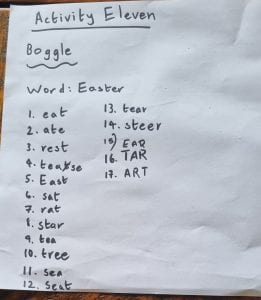 Activity Eleven
Boggle
Word: Easter
1. eat
2. ate
3. rest
4. tease
5. East
6. sat
7. rat
8. star
9. tea
10. tree
11. sea
12. Seat
13. tear
14. steer
15) EAR
16. TAR
17. ART